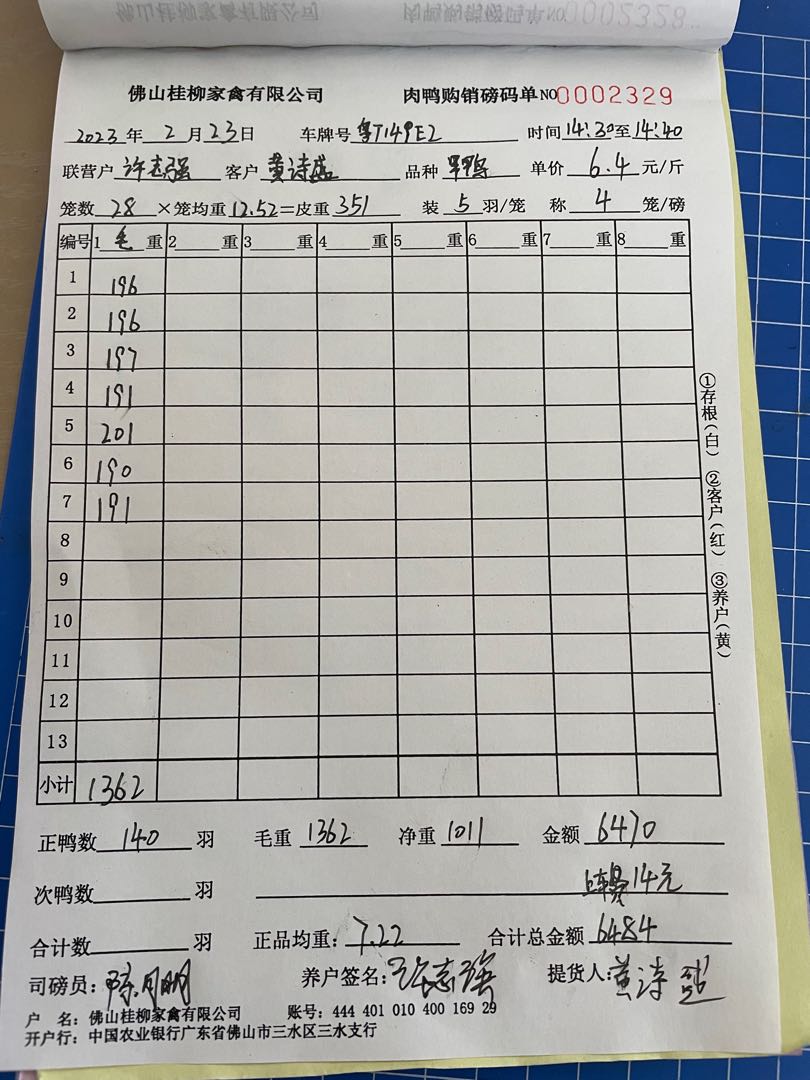 佛山桂柳家禽有限公司 肉鸭购销磅码单 NO 0002329
2023年2月23日 车牌号 粤T149E2 时间 14:30至14:40
联营户 许志强 客户 黄诗 品种 鸭 单价 6.4 元/斤
笼数 28 ×笼均重 12.52=皮重 351 装 5 羽/笼 称 4 笼/磅
编号 1 毛 重 2 重 3 重 4 重 5 重 6 重 7 重 8 重
1 196
2 196
3 197
4 191
5 201
6 190
7 191
8
9
10
11
12
13
小计 1362
正鸭数 140 羽 毛重 1362 净重 1011 金额 6470
次鸭数 羽 14元
合计数 羽 正品均重: 7.22 合计总金额 6484
司磅员: 养户签名: 许志强 提货人: 黄诗
户 名: 佛山桂柳家禽有限公司 账号: 444 401 010 400 169 29
开户行: 中国农业银行广东省佛山市三水区三水支行
①存根(白) ②客户(红) ③养户(黄)